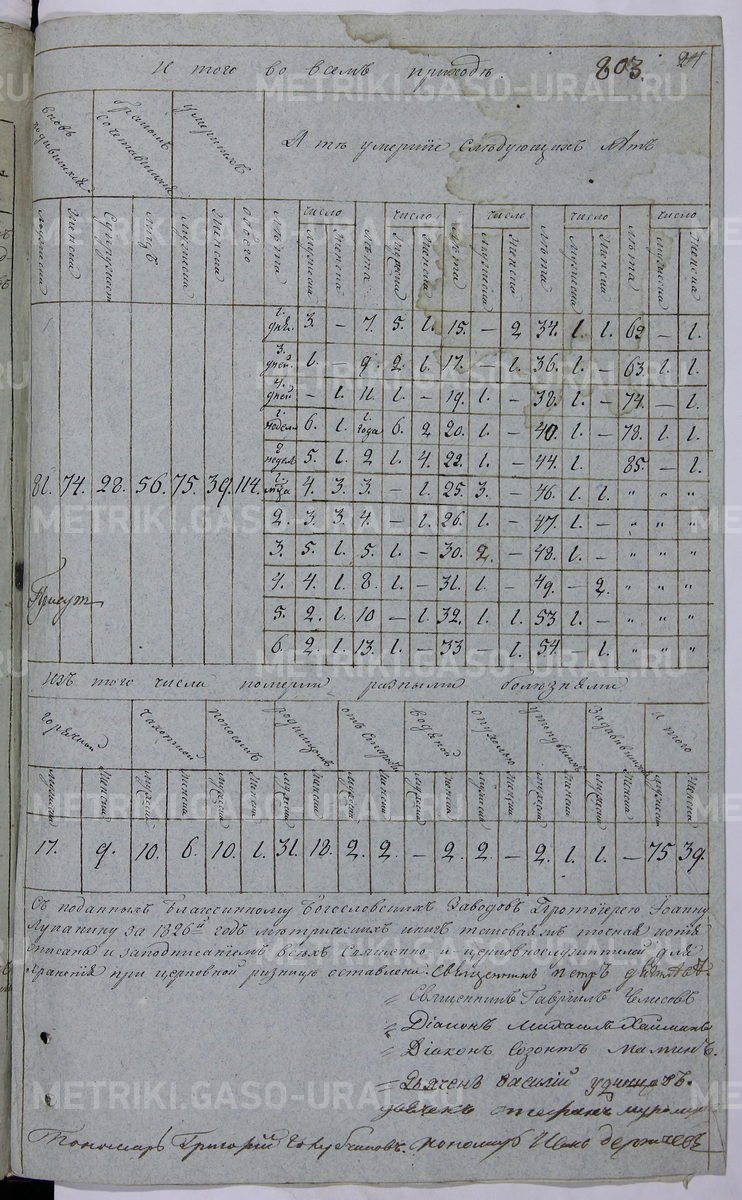 И того во всемъ приходѣ. 803. 24
вновь родившихся бракомъ сочетавшихся умершихъ А тѣ умершіе слѣдующихъ лѣтъ
число число число число число
мужеска женска супружест лицъ мужеска женска обоего лѣта мужеска женска лѣта мужеска женска лѣта мужеска женска лѣта мужеска женска лѣта мужеска женска
1. дня. 3. – 7. 5. 1. 15. – 2 34. 1. 1. 62 – 1.
3. дней. 1. – 9. 2. 1. 17. – 1. 36. 1. – 63. 1. 1.
4. дней – 1. 11. 1. – 19. 1. – 38. 1. – 74. – 1.
1. недели 6. 1. 1. года 6. 2 20. 1. – 40. 1. – 78. 1. 1.
2 недел 5. 1. 2 1. 4. 22. 1. – 44. 1. 85 – 1.
81. 74. 28. 56. 75. 39. 114. 1. мца 4. 3. 3. – 1. 25. 3. – 46. 1. 1. " " "
2. 3. 3. 4. – 1. 26. 1. – 47. 1. – " " "
3. 5. 1. 5. 1. – 30. 2. – 48. 1. – " " "
4. 4. 1. 8. 1. – 31. 1. – 49. – 2. " " "
5. 2. 1. 10 – 1. 32. 1. 1. 53 1. – " " "
6. 2. 1. 13. 1. – 33 – 1. 54 – 1. " " "
Изъ того числа померли разными болѣзнями
горячкой чахоткой поносомъ родимцомъ отъ старости водяной опухолью утонувшихъ задавившихся итого
мужеска женска мужеска женска мужеска женска мужеска женска мужеска женска мужеска женска мужеска женска мужеска женска мужеска женска мужеска женска
17. 9. 10. 6. 10. 1. 31. 18. 2. 2. – 2. 2. – 2. 1. 1. – 75 39.
Съ поданныхъ Благочинному Богословскихъ Заводовъ Протоіерею Іоанну
Лупанину за 1826й годъ метрическихъ книгъ точная копія
списана и заподписаніемъ всѣхъ священно и церковнослужителей для
храненія при церковной ризницѣ оставлена. Священникъ Петръ
Священникъ Гавріилъ
Діаконъ Михаилъ
Діаконъ Созонтъ Маминъ.
Дьячекъ Василій Удинцовъ.
дьячекъ Стефанъ
Пономарь Григорій пономарь
METRIKI.GASO-URAL.RU